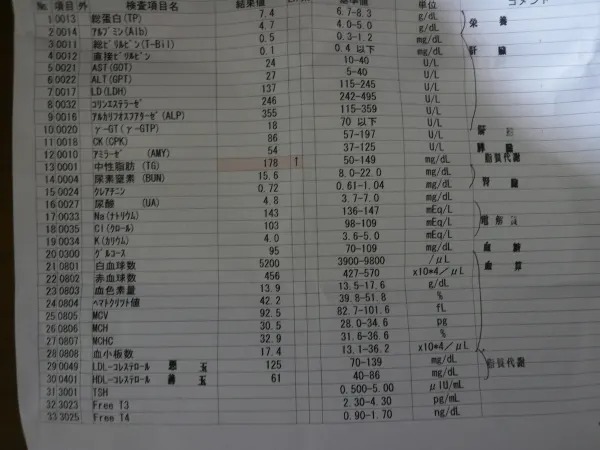 No. 項目 外 検査項目名 結果値 基準値 単位 コメント
1 0013 総蛋白(TP) 7.4 6.7-8.3 g/dL 栄養
2 0014 アルブミン(Alb) 4.7 4.0-5.0 g/dL
3 0011 総ビリルビン(T-Bil) 0.5 0.3-1.2 mg/dL 肝臓
4 0012 直接ビリルビン 0.1 0.4 以下 mg/dL
5 0021 AST(GOT) 24 10-40 U/L
6 0022 ALT(GPT) 27 5-40 U/L
7 0017 LD(LDH) 137 115-245 U/L
8 0032 コリンエステラーゼ 246 242-495 U/L
9 0016 アルカリフォスファターゼ(ALP) 355 115-359 U/L
10 0020 γ-GT(γ-GTP) 18 70 以下 U/L
11 0018 CK(CPK) 86 57-197 U/L
12 0010 アミラーゼ (AMY) 54 37-125 U/L 膵臓
13 0001 中性脂肪(TG) 178 ↑ 50-149 mg/dL 脂質代謝
14 0004 尿素窒素(BUN) 15.6 8.0-22.0 mg/dL 腎臓
15 0024 クレアチニン 0.72 0.61-1.04 mg/dL
16 0027 尿酸 (UA) 4.8 3.7-7.0 mg/dL
17 0033 Na(ナトリウム) 143 136-147 mEq/L 電解質
18 0035 Cl(クロール) 103 98-109 mEq/L
19 0034 K(カリウム) 4.0 3.6-5.0 mEq/L
20 0300 グルコース 95 70-109 mg/dL 血糖
21 0801 白血球数 5200 3900-9800 /μL 血算
22 0802 赤血球数 456 427-570 x10*4/μL
23 0803 血色素量 13.9 13.5-17.6 g/dL
24 0804 ヘマトクリット値 42.2 39.8-51.8 %
25 0805 MCV 92.5 82.7-101.6 fL
26 0806 MCH 30.5 28.0-34.6 pg
27 0807 MCHC 32.9 31.6-36.6 %
28 0808 血小板数 17.4 13.1-36.2 x10*4/μL
29 0049 LDL-コレステロール 悪玉 125 70-139 mg/dL 脂質代謝
30 0401 HDL-コレステロール 善玉 61 40-86 mg/dL
31 3001 TSH 0.500-5.00 μIU/mL
32 3023 Free T3 2.30-4.30 pg/mL
33 3025 Free T4 0.90-1.70 ng/dL